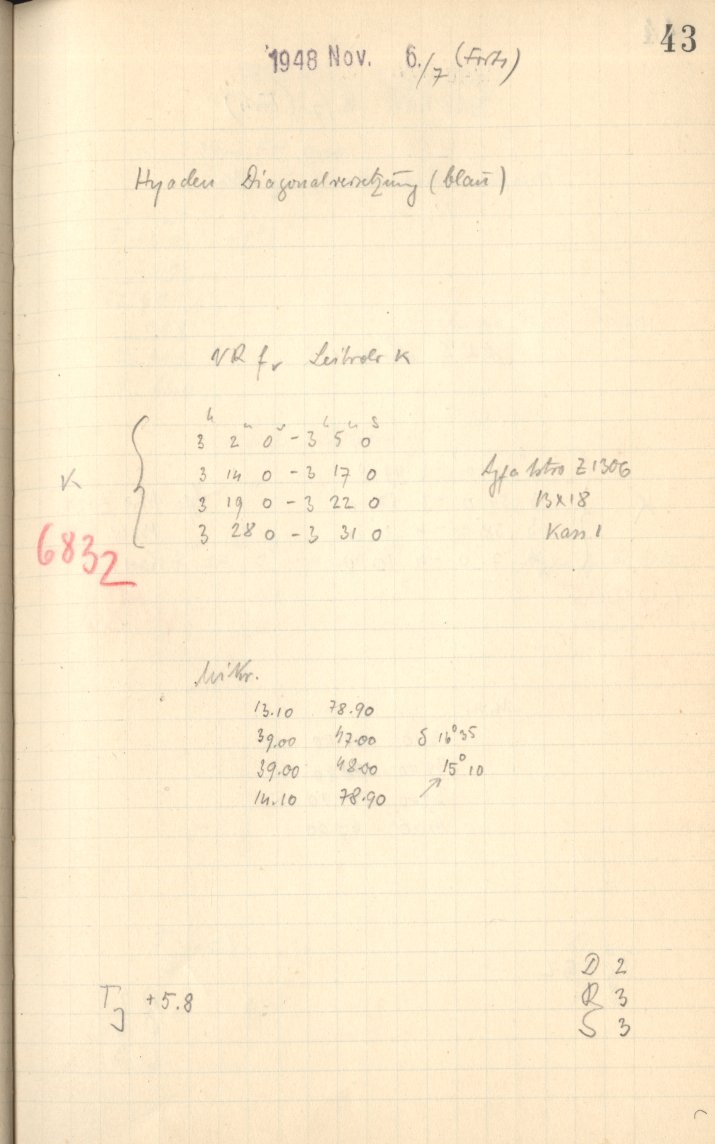 43
1948 Nov. 6./7 (Forts)
Hyaden Diagonalversetzung (blau)
VR f. Leitrohr K
h m s - h m s
3 2 0 - 3 5 0
3 14 0 - 3 17 0
K 3 19 0 - 3 22 0
3 28 0 - 3 31 0
Agfa Astro Z1306
13x18
Kass 1
6832
Mikr.
13.10 78.90
39.00 47.00 δ 16°35
39.00 48.00 15°10
14.10 78.90
T +5.8
D 2
R 3
S 3